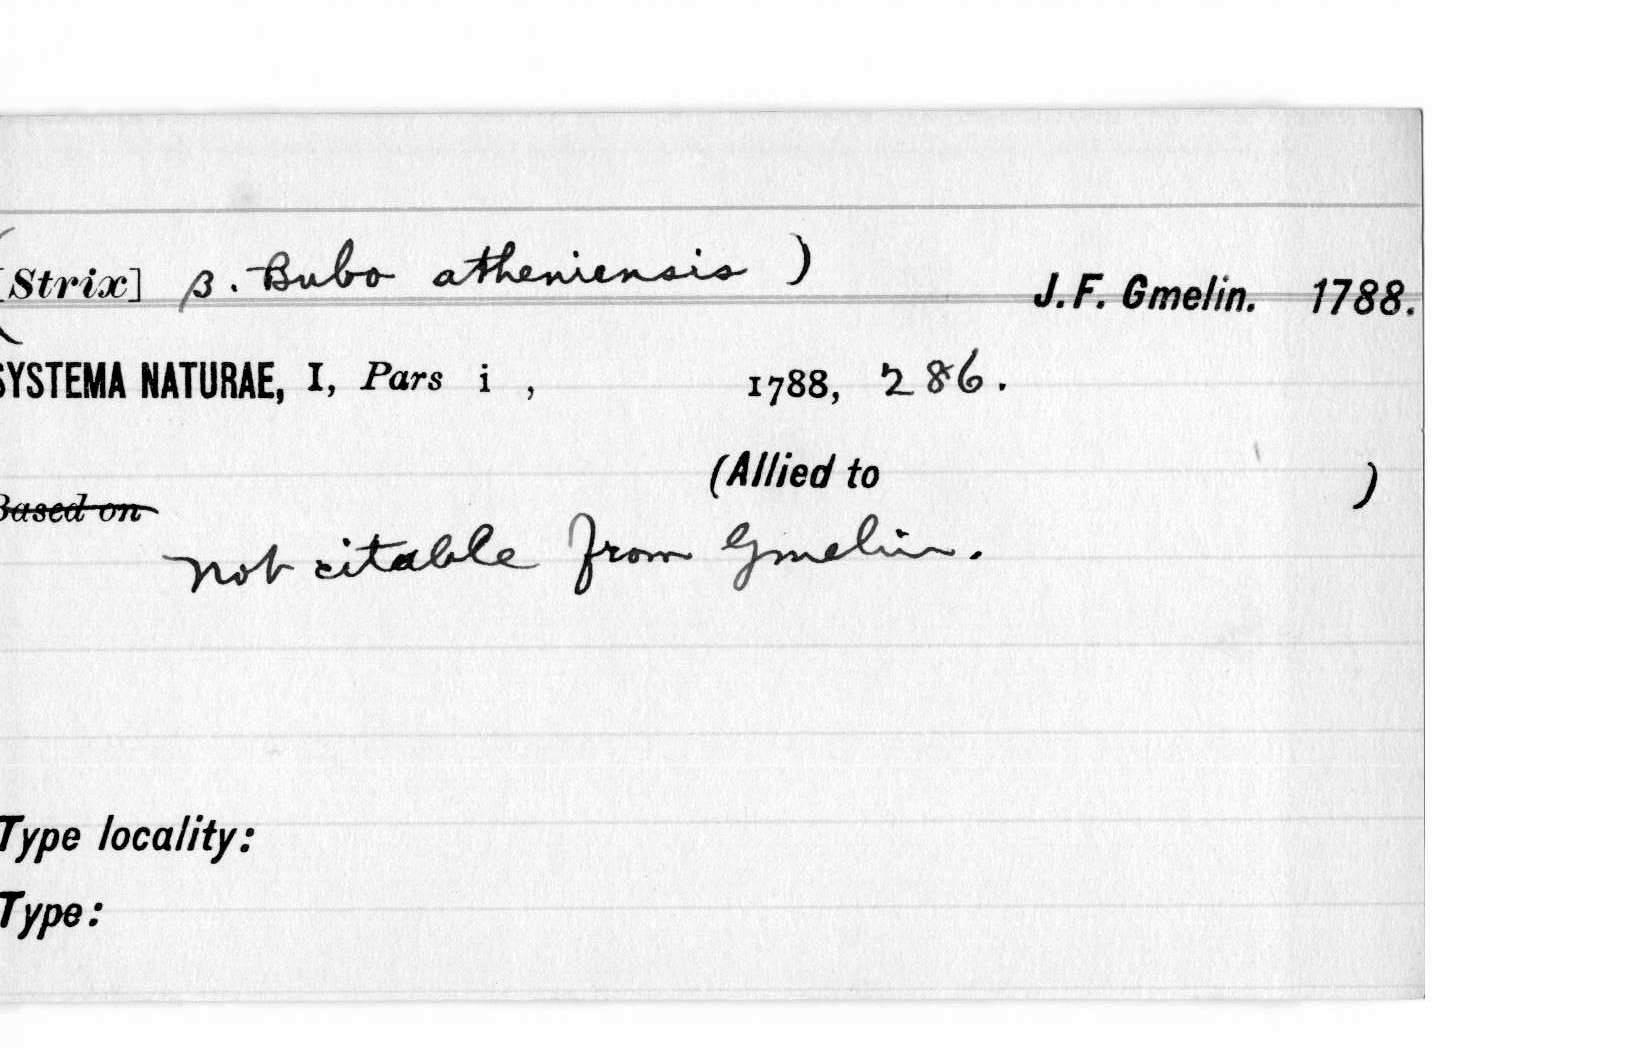 ([Strix] β. Bubo atheniensis ) J. F. Gmelin. 1788.
SYSTEMA NATURAE, I, Pars i , 1788, 286.
(Allied to )
Based on
not citable from Gmelin.
Type locality:
Type: